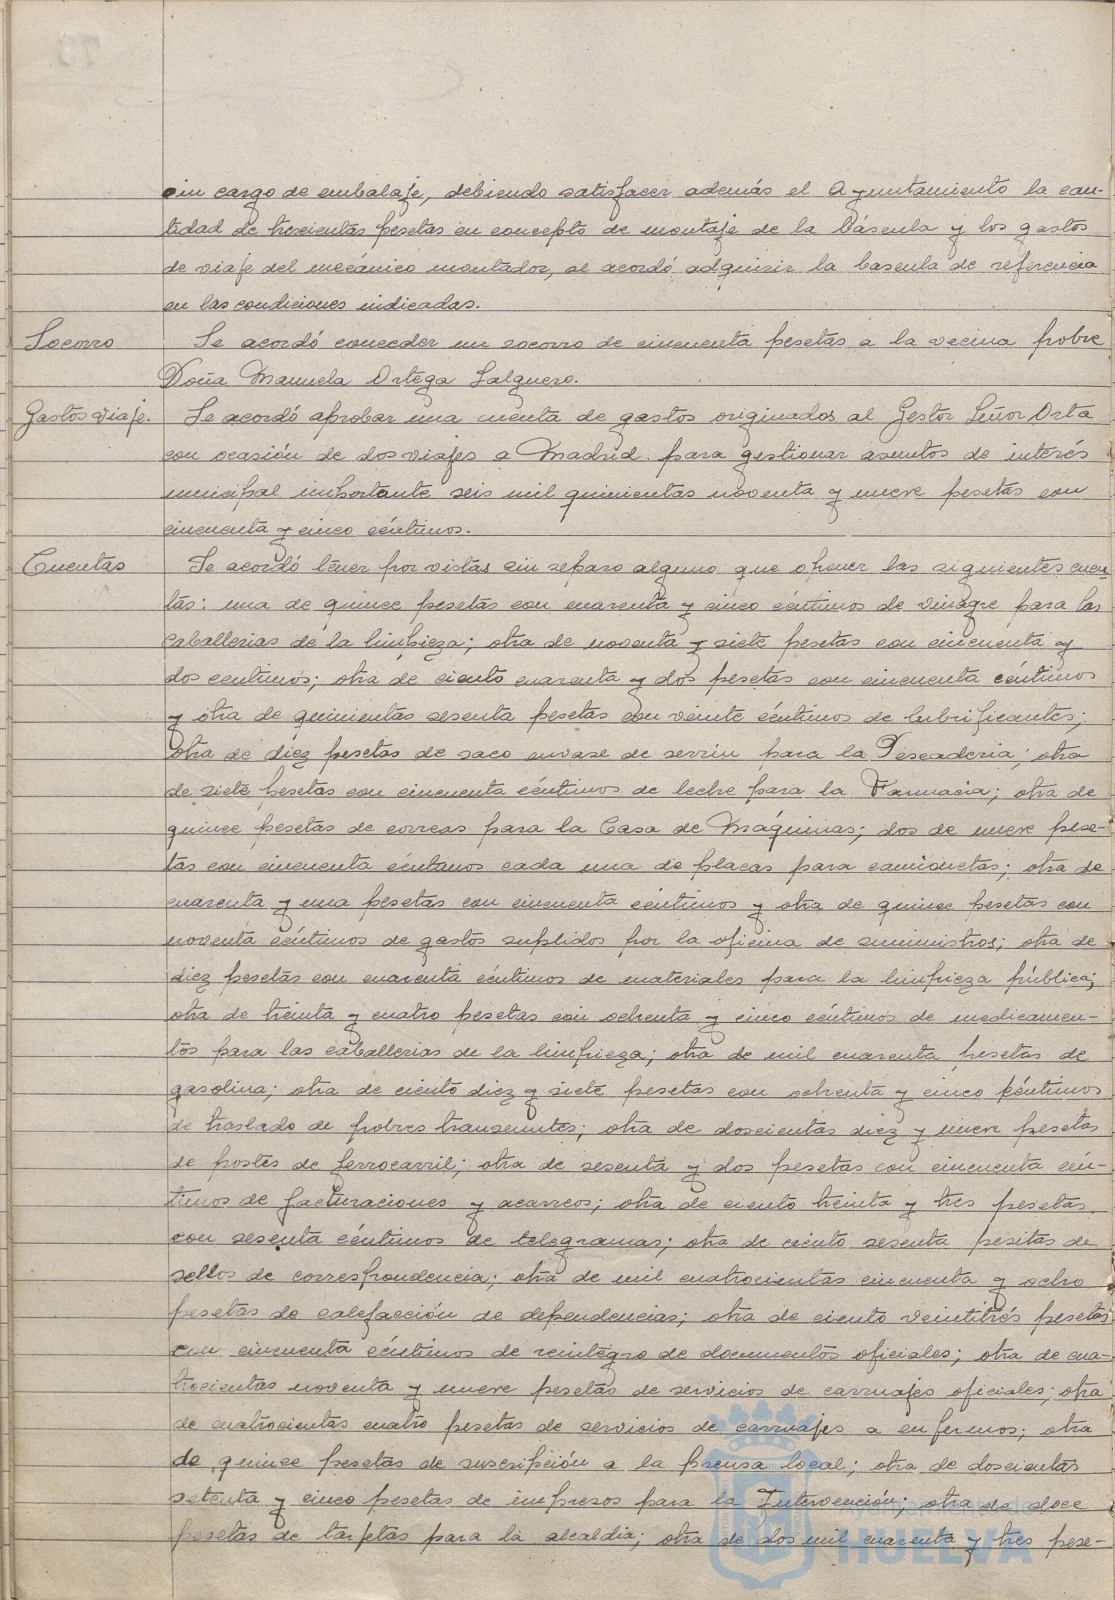 sin cargo de embalaje, debiendo satisfacer además el Ayuntamiento la can-
tidad de trescientas pesetas en concepto de montaje de la báscula y los gastos
de viaje del mecánico montador, se acordó adquirir la bascula de referencia
en las condiciones indicadas.
Socorro
Se acordó conceder un socorro de cincuenta pesetas a la vecina pobre
Doña Manuela Ortega Salguero.
Gastos viaje.
Se acordó aprobar una cuenta de gastos originados al Gestor Señor Orta
con ocasión de dos viajes a Madrid para gestionar asuntos de interés
municipal importante seis mil quinientas noventa y nueve pesetas con
cincuenta y cinco céntimos.
Cuentas
Se acordó tener por vistas sin reparo alguno que oponer las siguientes cuen-
tas: una de quince pesetas con cuarenta y cinco céntimos de vinagre para las
caballerias de la limpieza; otra de noventa y siete pesetas con cincuenta y
dos centimos; otra de ciento cuarenta y dos pesetas con cincuenta céntimos
y otra de quinientas sesenta pesetas con veinte céntimos de lubrificantes;
otra de diez pesetas de saco envase de serrín para la Pescaderia; otra
de siete pesetas con cincuenta céntimos de leche para la Farmacia; otra de
quince pesetas de correas para la Casa de Máquinas; dos de nueve pese-
tas con cincuenta céntimos cada una de placas para camionetas; otra de
cuarenta y una pesetas con cincuenta céntimos y otra de quince pesetas con
noventa céntimos de gastos suplidos por la oficina de suministros; otra de
diez pesetas con cuarenta céntimos de materiales para la limpieza pública;
otra de treinta y cuatro pesetas con ochenta y cinco céntimos de medicamen-
tos para las caballerias de la limpieza; otra de mil cuarenta pesetas de
gasolina; otra de ciento diez y siete pesetas con ochenta y cinco céntimos
de traslado de pobres transeuntes; otra de doscientas diez y nueve pesetas
de portes de ferrocarril; otra de sesenta y dos pesetas con cincuenta cén-
timos de facturaciones y acarreos; otra de ciento treinta y tres pesetas
con sesenta céntimos de telegramas; otra de ciento sesenta pesetas de
sellos de correspondencia; otra de mil cuatrocientas cincuenta y ocho
pesetas de calefacción de dependencias; otra de ciento veintitrés pesetas
con cincuenta céntimos de reintegro de documentos oficiales; otra de cua-
trocientas noventa y nueve pesetas de servicios de carruajes oficiales; otra
de cuatrocientas cuatro pesetas de servicios de carruajes a enfermos; otra
de quince pesetas de suscripción a la prensa local; otra de doscientas
setenta y cinco pesetas de impresos para la Intervención; otra de doce
pesetas de tarjetas para la alcaldia; otra de dos mil cuarenta y tres pese-
Ayuntamiento de
HUELVA